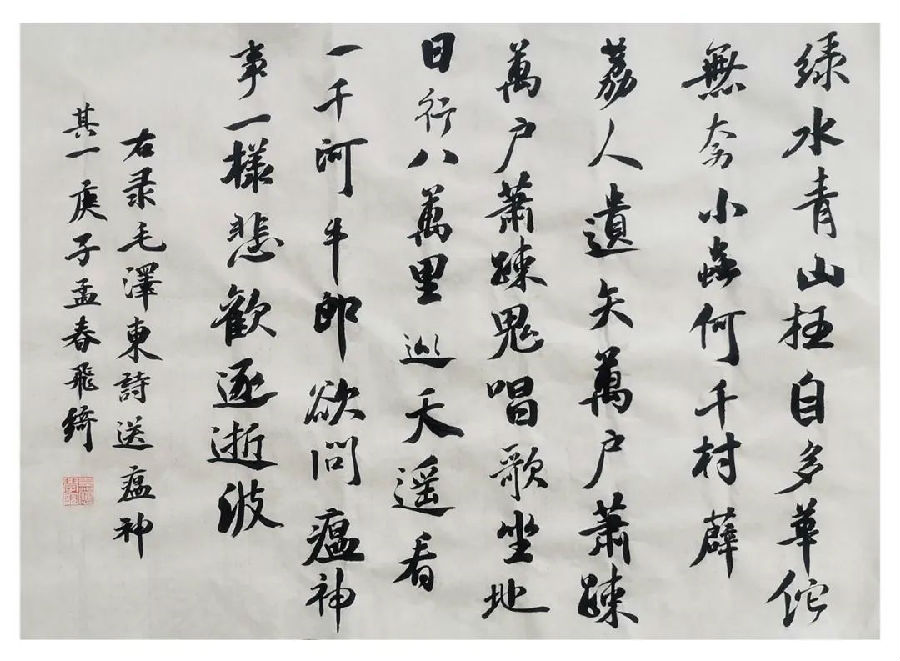 绿水青山枉自多華佗
無奈小蟲何千村薜
荔人遺矢萬户蕭踈
萬户蕭踈鬼唱歌坐地
日行八萬里巡天遥看
一千河牛郎欲問瘟神
事一樣悲歡逐逝波
右录毛澤東詩送瘟神
其一庚子孟春飛綺